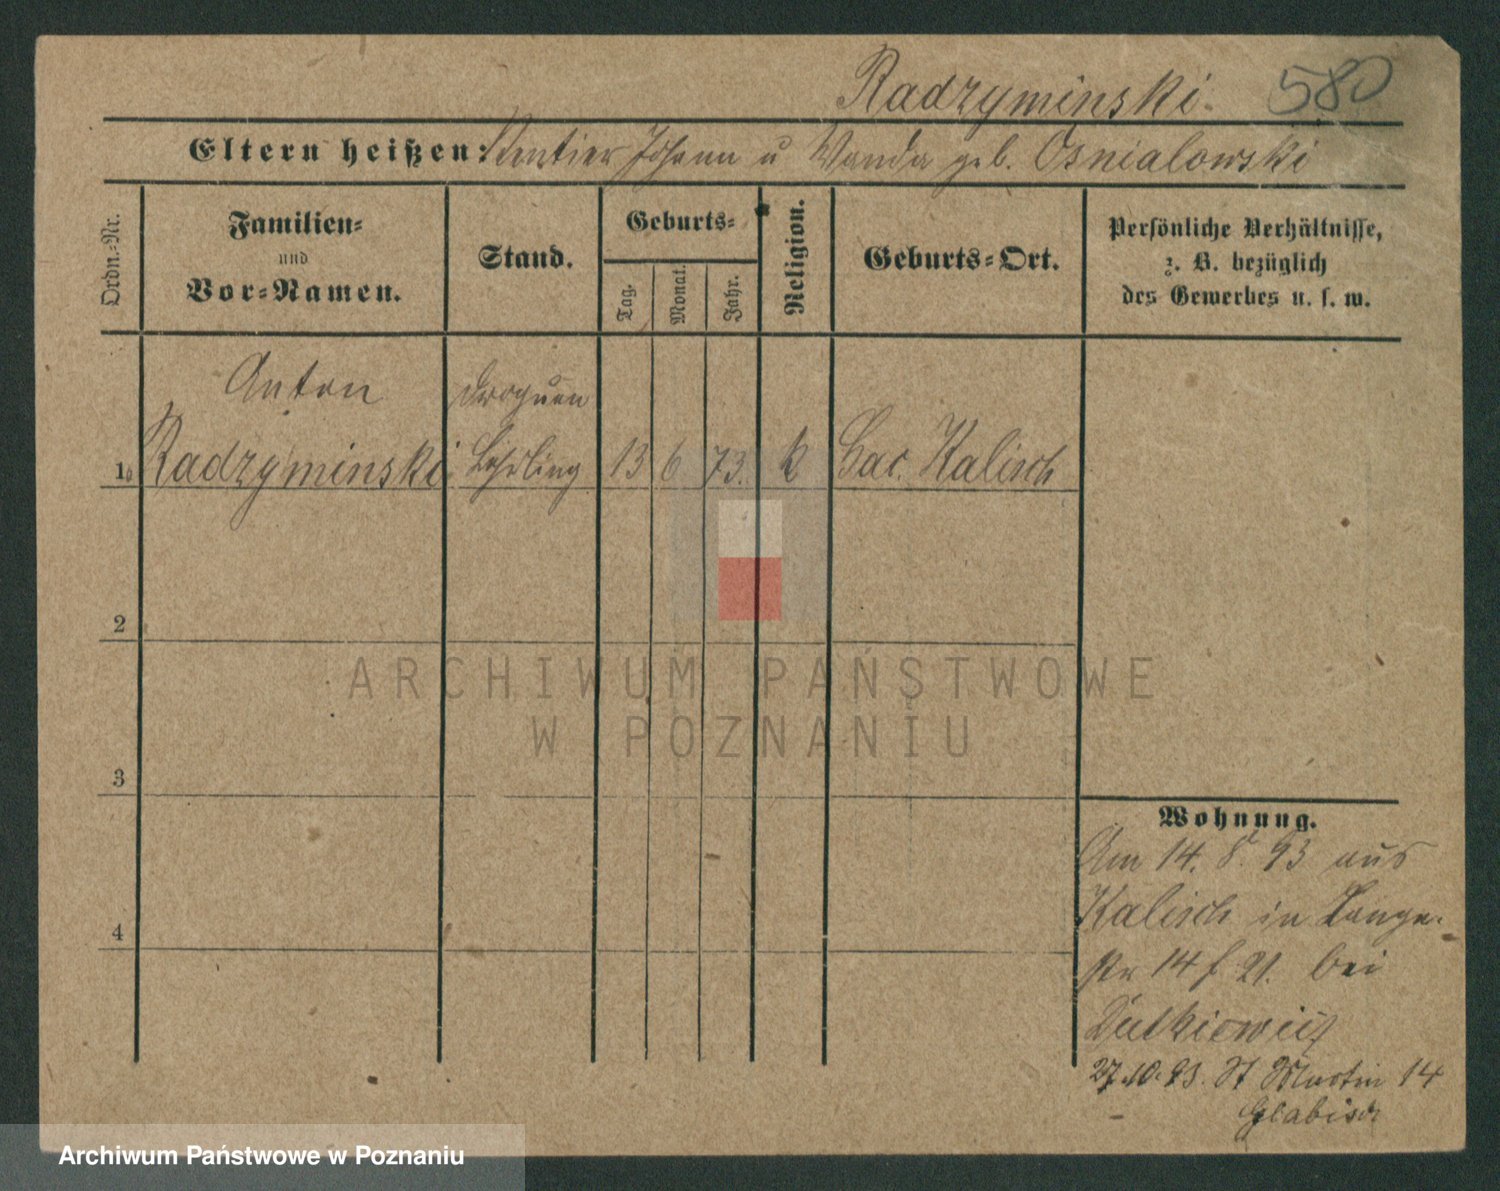 Radzyminski. 580
Eltern heißen: Rentier Johann u Wanda geb. Osnialowski
Ordn.-Nr.
Familien-
und
Vor-Namen.
Stand.
Geburts-
Tag.
Monat.
Jahr.
Religion.
Geburts-Ort.
Persönliche Verhältnisse,
z. B. bezüglich
des Gewerbes u. s. w.
Anton Droguen
1. Radzyminski Lehrling 13 6 73. k Kalisch
2
3
4
Wohnung.
Am 14. 8. 93 aus
Kalisch in Lange-
str 14 bei
Dutkiewicz
27.10.93. St Martin 14
Glabisch
ARCHIWUM PAŃSTWOWE
W POZNANIU
Archiwum Państwowe w Poznaniu